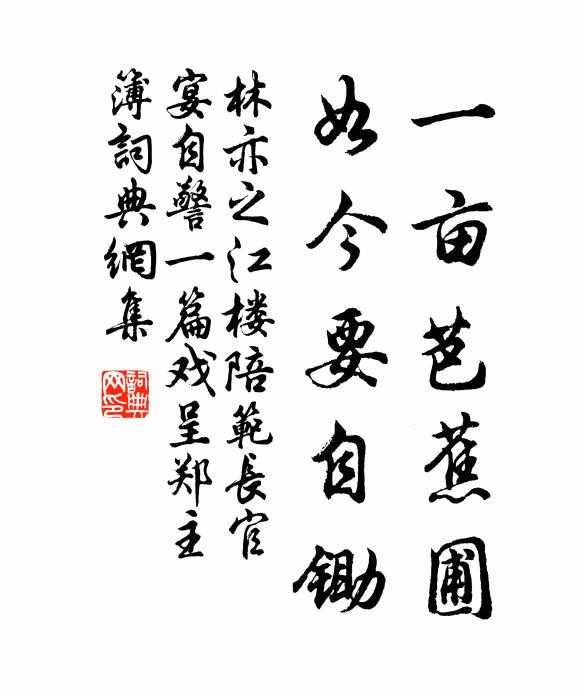 一亩芭蕉圃
如今要自锄
林亦之江楼陪範長官
宴自警一篇戏呈郑主
簿詞典網集
詞典
网印